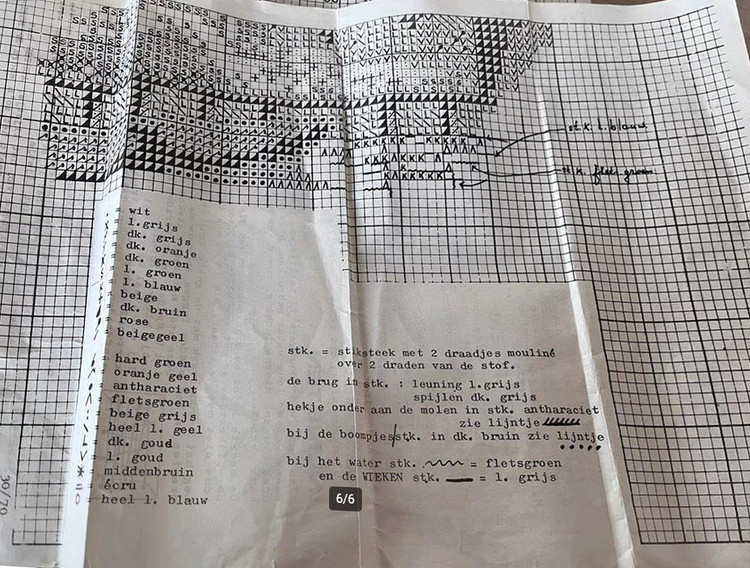 st.k. l. blauw
st.k. flets groen
wit
l.grijs
dk. grijs
dk. oranje
dk. groen
l. groen
l. blauw
beige
dk. bruin
rose
beigegeel
hard groen
oranje geel
antharaciet
fletsgroen
beige grijs
heel l. geel
dk. goud
l. goud
middenbruin
écru
heel l. blauw
stk. = stiksteek met 2 draadjes mouliné
over 2 draden van de stof.
de brug in stk. : leuning l.grijs
spijlen dk. grijs
hekje onder aan de molen in stk. antharaciet
zie lijntje
bij de boompjes stk. in dk. bruin zie lijntje
bij het water stk. = fletsgroen
en de WIEKEN stk. = l. grijs
6/6
30/70